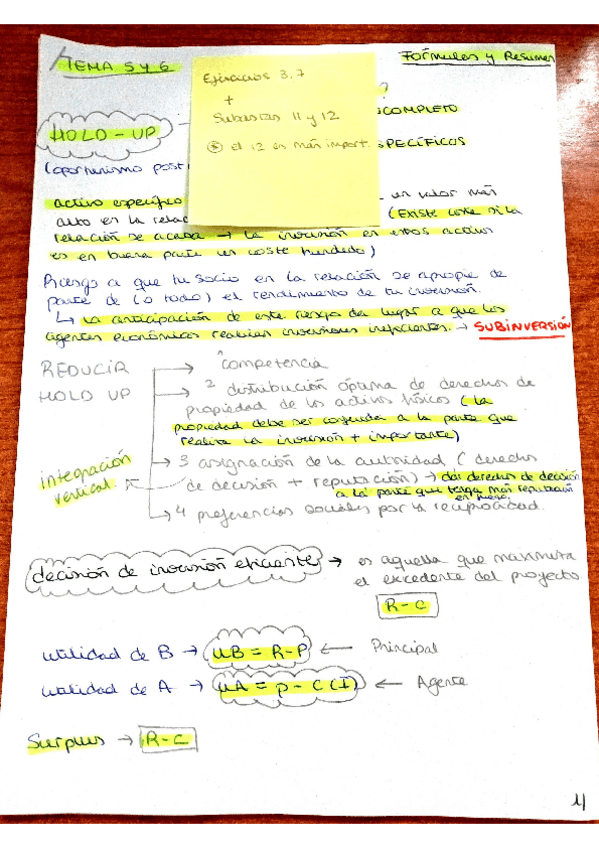 TEMA 5 y 6
Fórmulas y Resumen
Ejercicios 3, 7
+
Subastas 11 y 12
* el 12 es más import.
?
COMPLETO
HOLD-UP
SPECÍFICOS
(oportunismo post
activo específico un valor más
alto en la relac (Existe coste si la
relación se acaba → la inversión en estos activos
es en buena parte un coste hundido)
Riesgo a que tu socio en la relación se apropie de
parte de (o todo) el rendimiento de tu inversión.
↳ La anticipación de este riesgo da lugar a que los
agentes económicos realicen inversiones ineficientes. → SUBINVERSIÓN
REDUCIR
HOLD UP
→ 1 competencia
→ 2 distribución óptima de derechos de
propiedad de los activos físicos (la
propiedad debe ser cogenda a la parte que
realiza la inversión + importante)
integración
vertical.
→ 3 asignación de la autoridad (derechos
de decisión + reputación) → dar derechos de decisión
a la parte que tenga más reputación
en juego
→ 4 preferencias sociales por la reciprocidad.
decisión de inversión eficiente → es aquella que maximiza
el excedente del proyecto
R-C
utilidad de B → uB = R-P ← Principal
utilidad de A → uA = p - C(I) ← Agente
Surplus → R-C